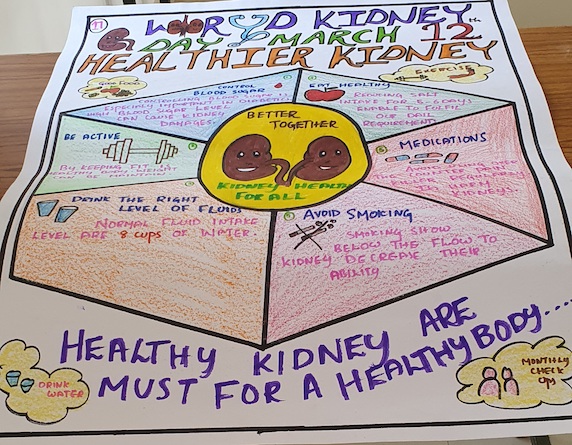 11
WORLD KIDNEY
DAY MARCH 12th
HEALTHIER KIDNEY
EXERCISE
CONTROL
BLOOD SUGAR
CONTROLLING BLOOD SUGAR IS
ESPECIALLY IMPORTANT IN DIABETICS
HIGH BLOOD SUGAR LEVEL
CAN CAUSE KIDNEY
DAMAGES
EAT HEALTHY
REDUCING SALT
INTAKE FOR 5-6 DAYS
ENOUGH TO FULFIL
OUR DAIL
REQUIREMENT
BE ACTIVE
BY KEEPING FIT
HEALTHY BODY WEIGHT
BE MAINTAIN
BETTER
TOGETHER
KIDNEY HEALTH
FOR ALL
MEDICATIONS
REGULARLY
HARM
KIDNEYS
DRINK THE RIGHT
LEVEL OF FLUIDS
NORMAL FLUID INTAKE
LEVEL ARE 8 CUPS OF WATER.
AVOID SMOKING
SMOKING SHOW
BELOW THE FLOW TO
KIDNEY DECREASE THEIR
ABILITY
HEALTHY KIDNEY ARE
MUST FOR A HEALTHY BODY....
DRINK
WATER
MONTHLY
CHECK
UPS